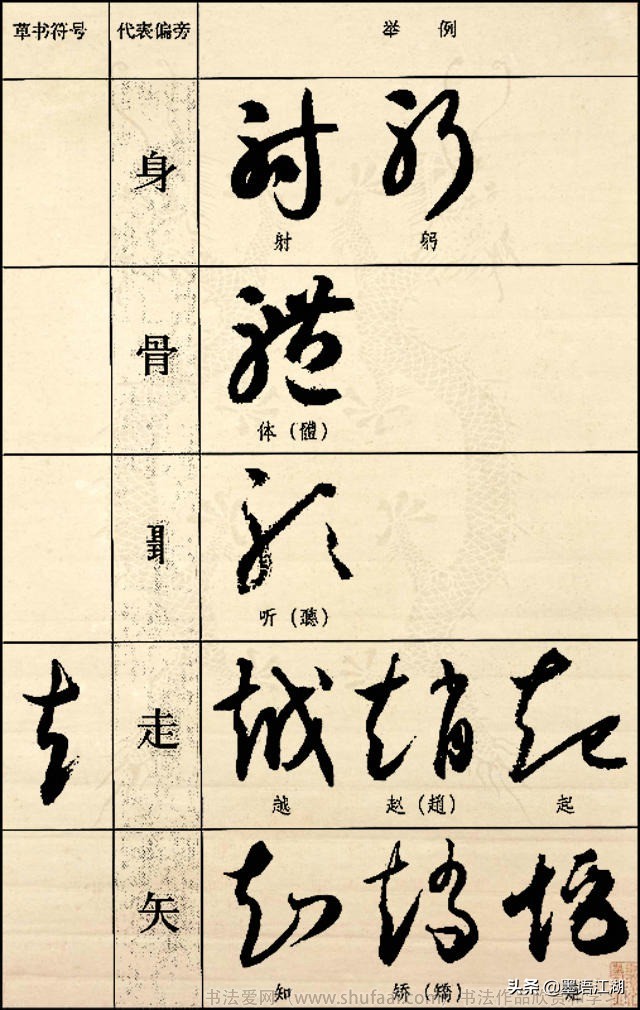 草书符号 代表偏旁 举例
身 射 躬
射 躬
骨 體
体（體）
聽
听（聽）
走 走 越 趙 起
越 赵（趙） 起
矢 知 矯
知 矫（矯）
书法爱网(www.shufaai.com) 书法作品欣赏和学习
头条 @墨语江湖